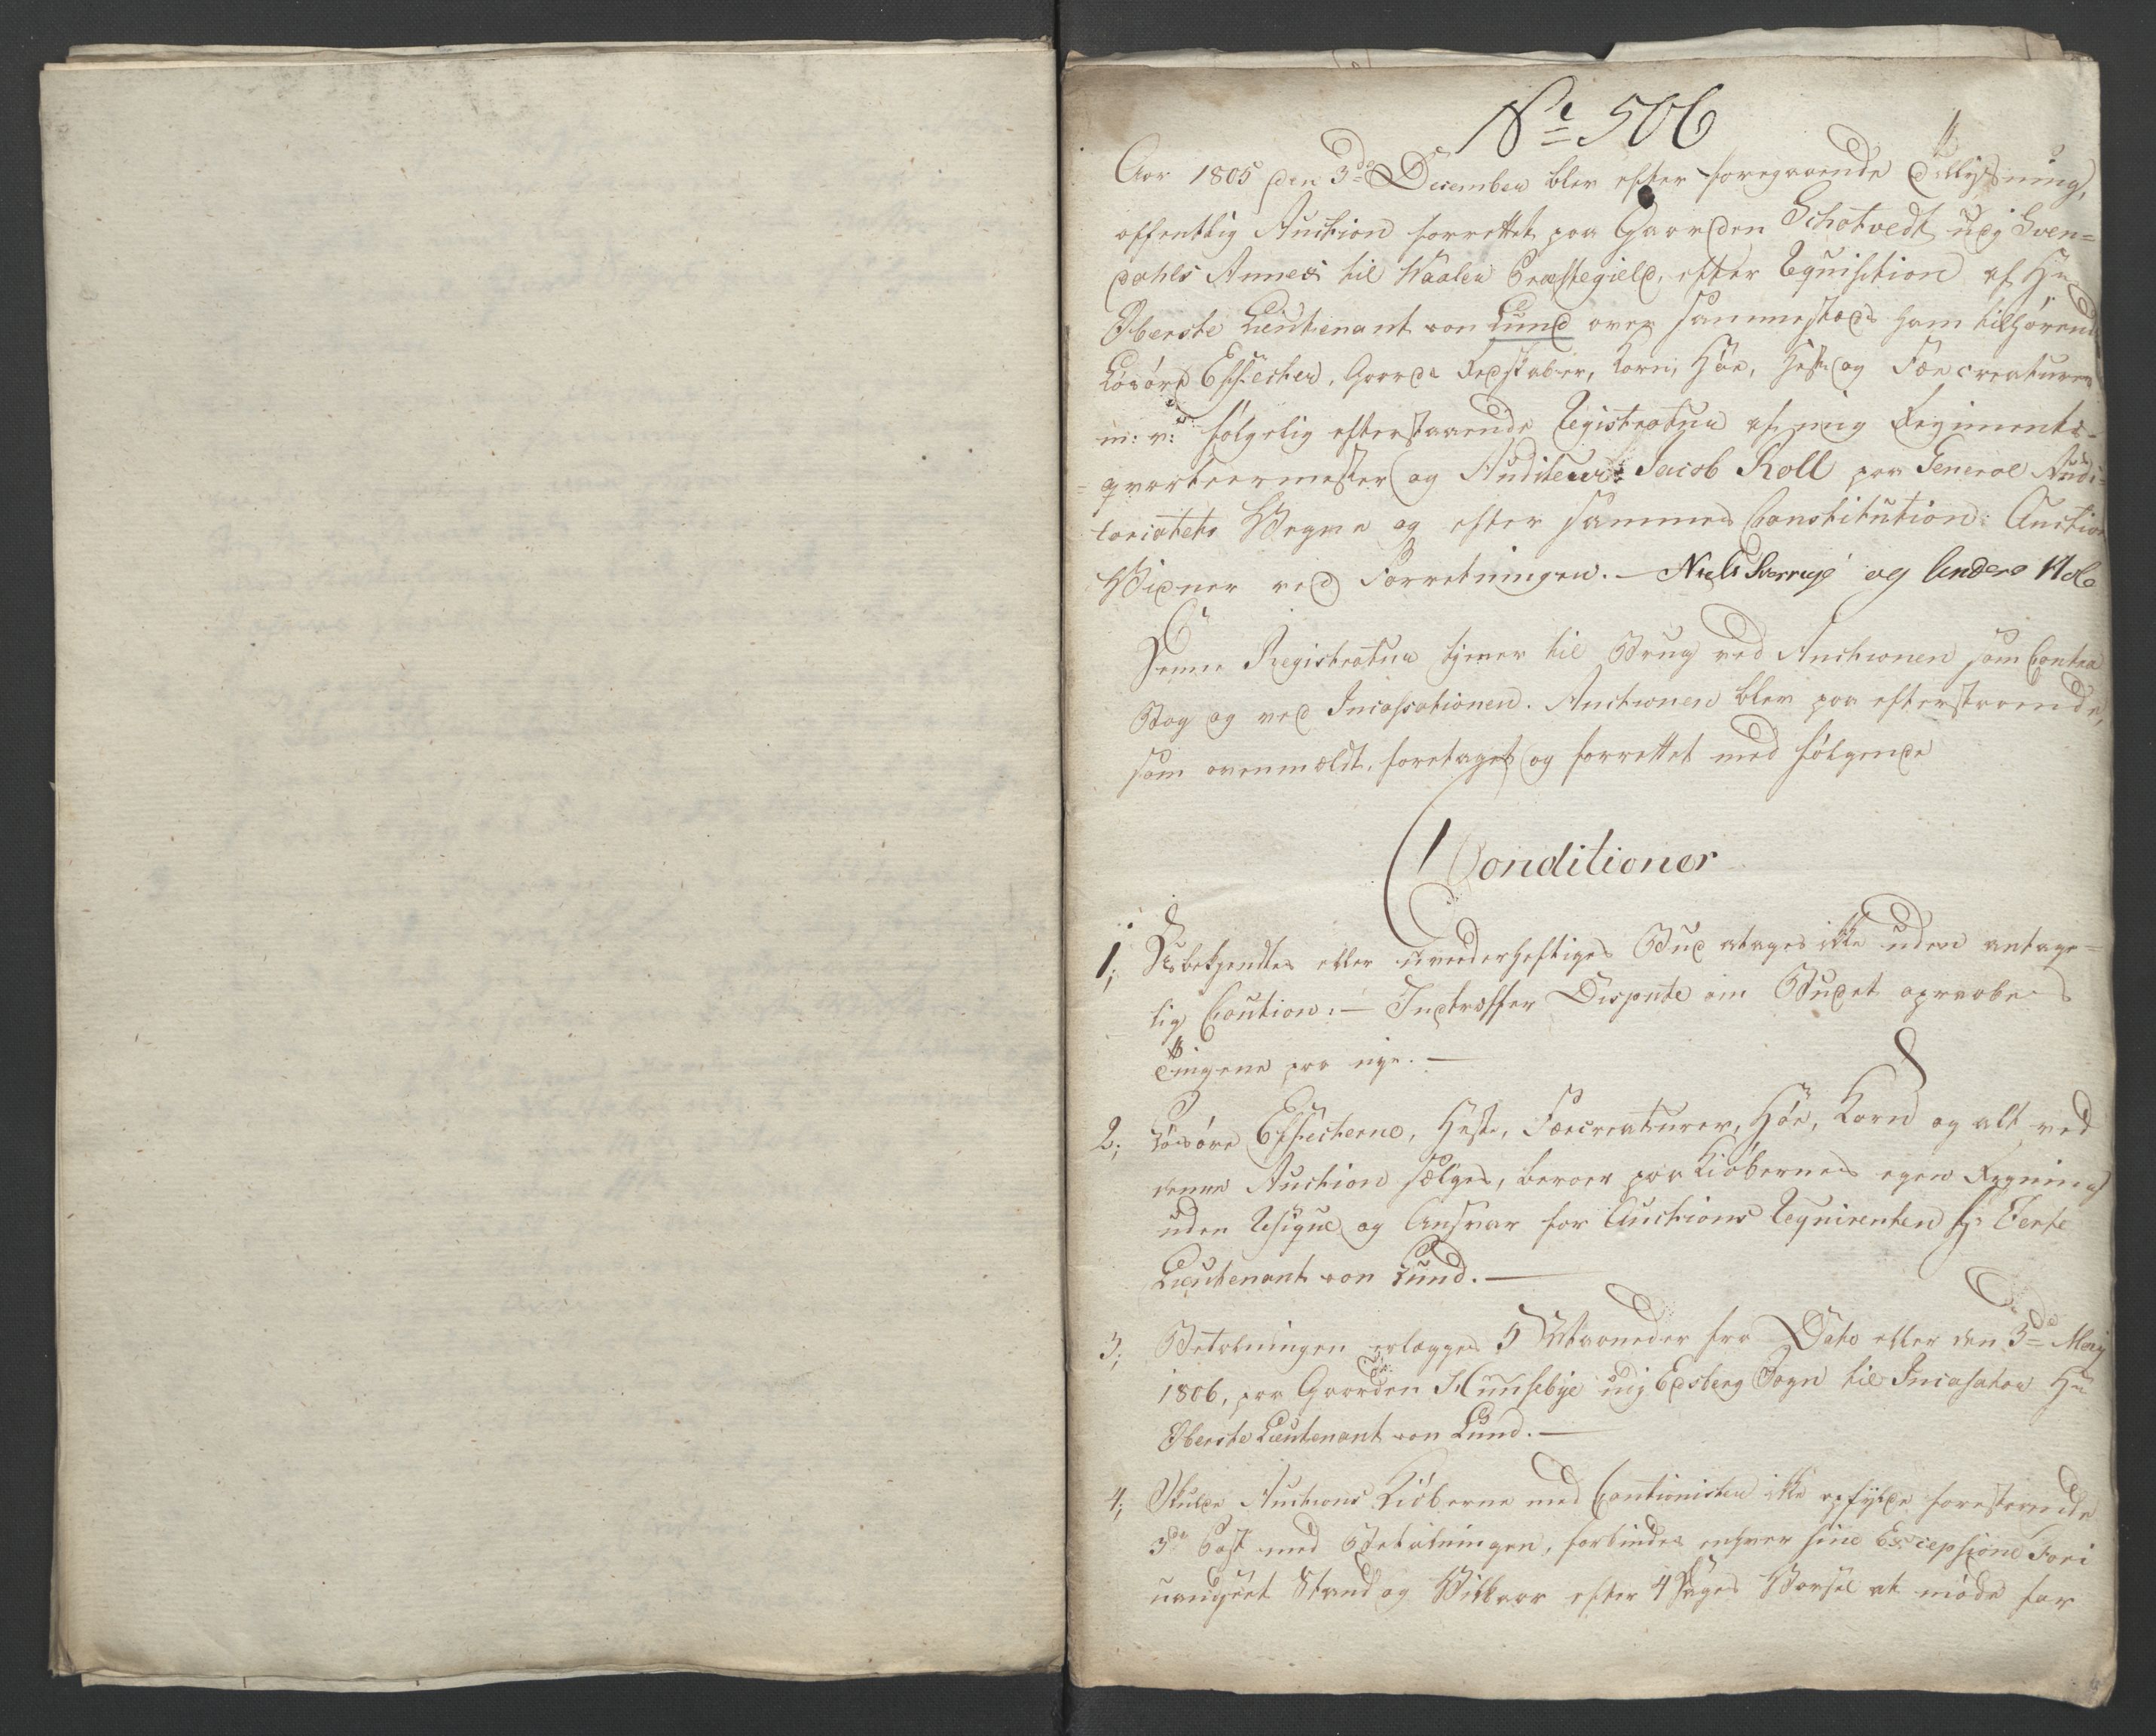 No 506
Aar 1805 den 3de December blev efter foregaaende Tillysning,
offentlig Auction forrettet paa Gaarden Schotvedt udj Sven=
dahls Annex til Waaler Præstegield, efter Requisition af Hr
Oberste Lieutenant von Lund over sammesteds ham tilhørende
Løsøre Effecter, Gaards Redskaber, Korn, Høe, Heste og Fæe creaturer
m: v: følgelig efterstaaende Registratur af mig Regiments-
qvarteermester og Auditeur: Jacob Koll paa General Audi=
toriatets Vegne og efter sammes Constitution: Auction
Vidner ved Forretningen. — Niels og Anders
Denne Registratur tjener til Brug ved Auctionen som Contra
Bog og ved Incassationen. Auctionen blev paa efterstaaende,
som ovenmeldt, foretaget og forrettet med følgende
Conditioner
1; Ubekjendtes eller uvederheftiges Bud atages ikke uden antage=
lig Caution: — Indtræffer Dispute om Budet opraabes
Tingene paa nye. —
2; Løsøre Effecterne, Heste, Fæecreaturer, Høe, Korn og alt ved
denne Auction sælges, beroer paa Kiøbernes egen Regning
uden Risique og Ansvar for Auctions Reqvirenten Hr
Lieutenant von Lund. —
3; Betalningen erlægges 5 Maaneder fra Dato eller den 3de Maj
1806, paa Gaarden Huusebye udj Edsberg Sogn til Incasator Hr
Oberste Lieutenant von Lund. —
4; Skulde Auctions Kiøberne med Cautionister ikke opfylde forestaaende
3de Post med Betalningen, forbindes enhver sine Exceptione Fori
uanseet Stand og Vilkaar efter 4 Dages Varsel at møde for